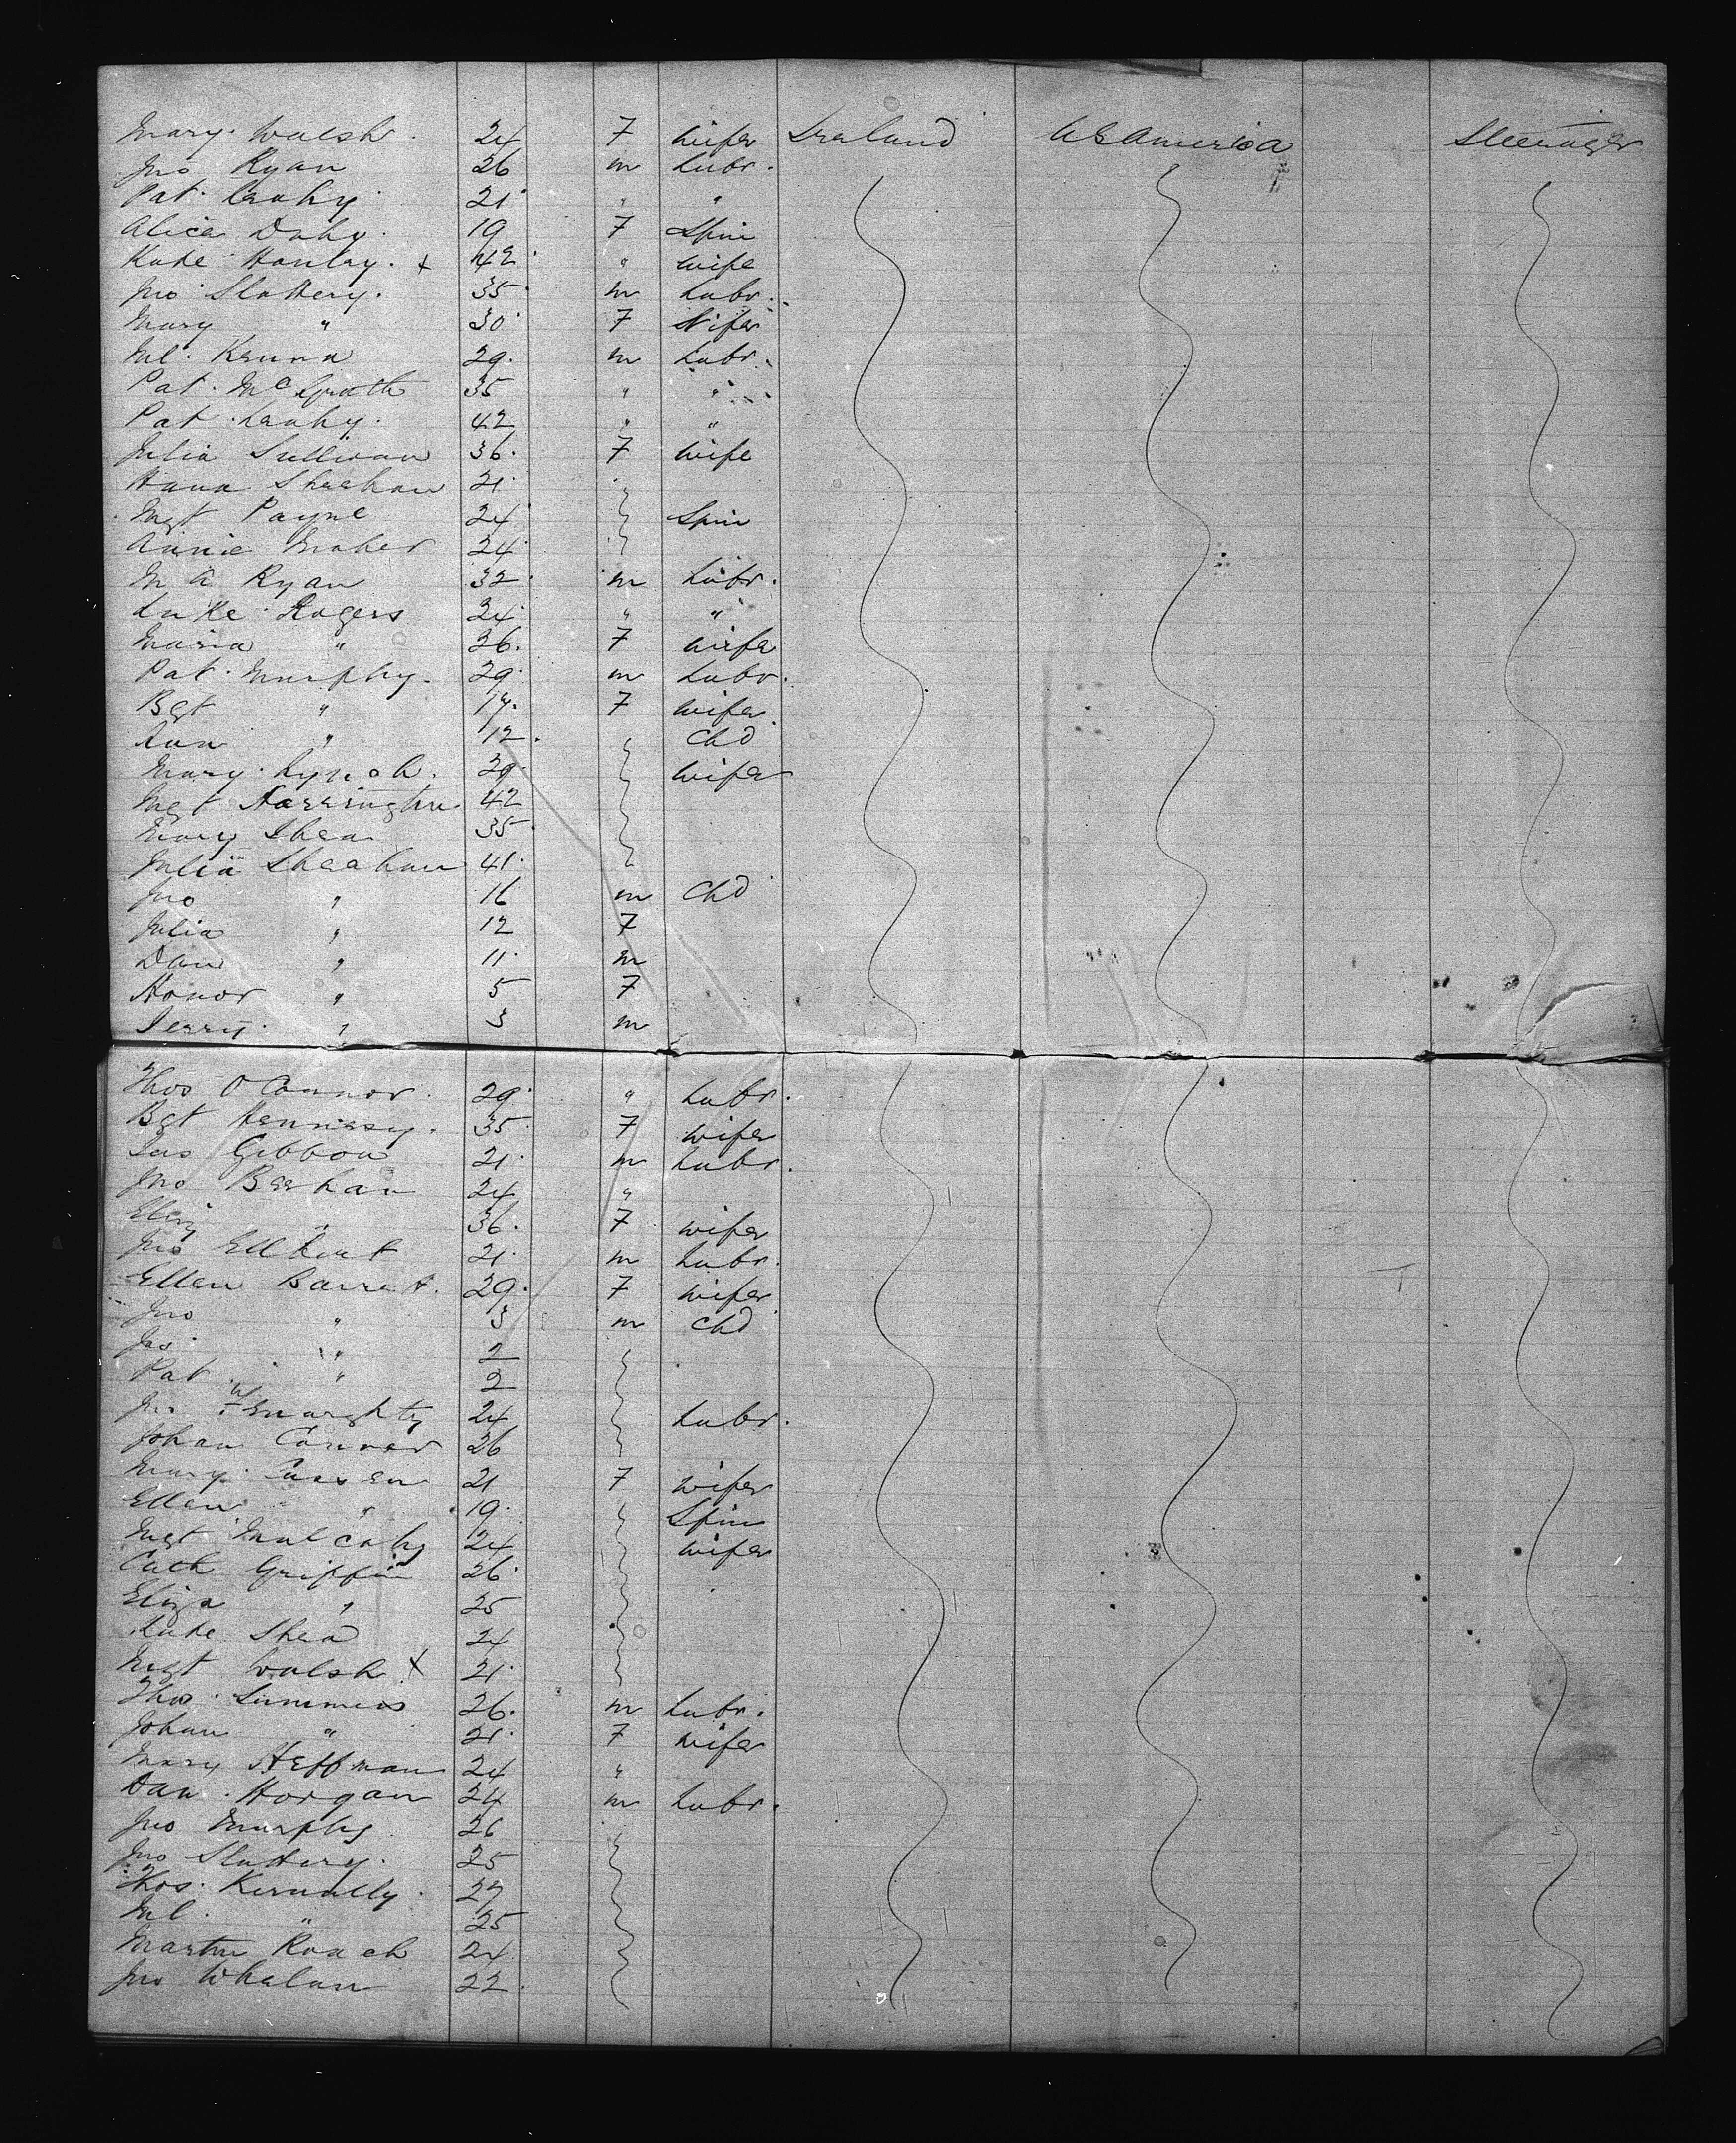 Mary Walsh 24 F wife Ireland U S America Steerage
Jno Ryan 26 m Labr.
Pat Leahy 21 " "
Alice Dahy 19 F Spin
Kate Hanley x 42 " wife
Jno Slattery 35 m Labr.
Mary " 30 F Wife
Ml. Kenna 29 m Labr.
Pat. McGrath 35 " "
Pat Leahy 42 " "
Julia Sullivan 36 F wife
Hana Sheehan 21
Mgt Payne 24 Spin
Annie Maher 24
M A Ryan 32 m Labr.
Luke Rogers 34 " "
Maria " 36 F wife
Pat Murphy 29 m Labr.
Bgt " 17 F wife
Ann " 12 Chd
Mary Lynch 39 wife
Mgt Harrington 42
Mary Shea 35
Julia Sheahan 41
Jno " 16 m Chd
Julia " 12 F
Dan " 11 m
Honor " 5 F
Jerry " 3 m
Thos O'Connor 29 " Labr.
Bgt Hennesy 35 F wife
Jas Gibbon 21 m Labr.
Jno Beehan 24 "
Eliz " 36 F wife
Jno 21 m Labr.
Ellen Barrett 29 F wife
Jno " 3 m Chd
Jas " 2
Pat " 2
Jno 24 Labr.
Johan Connor 26
Mary 21 F wife
Ellen " 19 Spin
Mgt Mulcahy 24 wife
Cath Griffin 26
Eliza " 25
Kate Shea 24
Mgt Walsh x 21
Thos 26 m Labr.
Johan " 21 F wife
Mary Heffman 24 "
Dan Horgan 24 m Labr.
Jno Murphy 26
Jno Slattery 25
Thos. Kennelly 27
Ml. " 25
Martin Roach 24
Jno Whelan 22